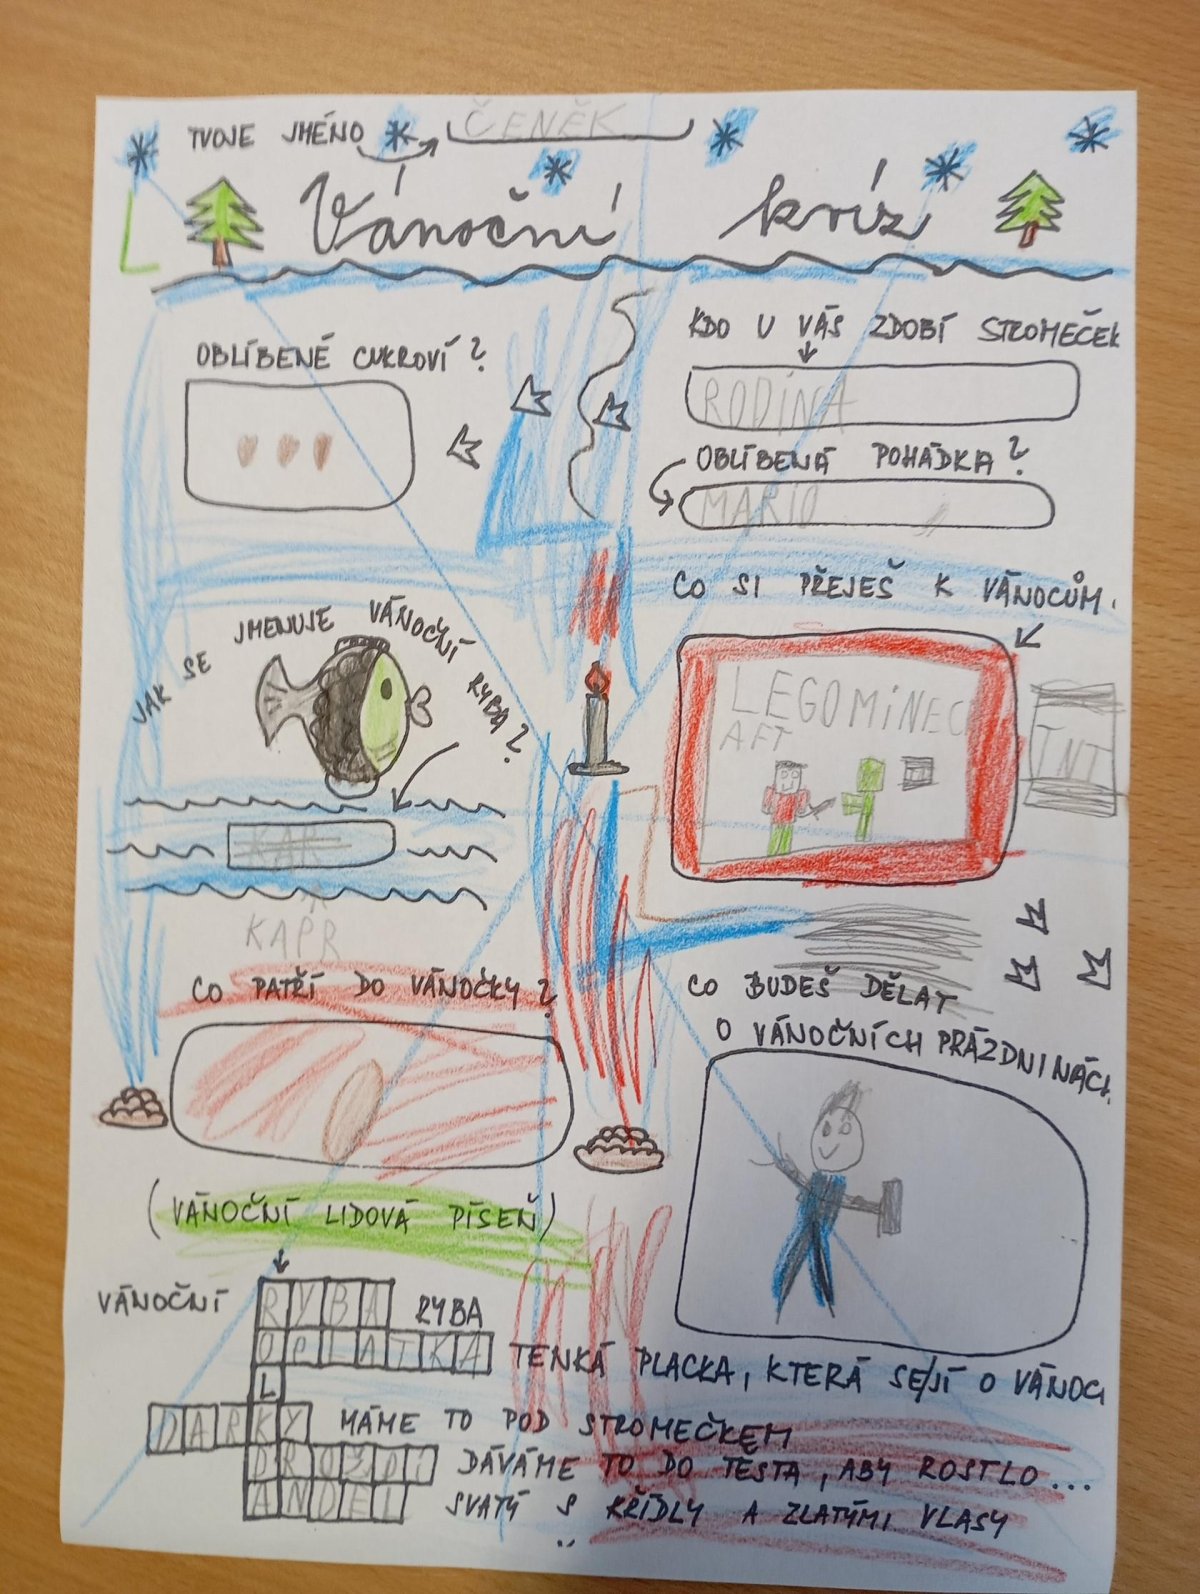 TVOJE JMÉNO ČENĚK
Vánoční kvíz
OBLÍBENÉ CUKROVÍ?
KDO U VÁS ZDOBÍ STROMEČEK
RODINA
OBLÍBENÁ POHÁDKA?
MARIO
JAK SE JMENUJE VÁNOČNÍ RYBA?
KAR
KAPR
CO SI PŘEJEŠ K VÁNOCŮM.
LEGO MINEC
AFT
TNT
CO PATŘÍ DO VÁNOČKY?
CO BUDEŠ DĚLAT
O VÁNOČNÍCH PRÁZDNINÁCH.
(VÁNOČNÍ LIDOVÁ PÍSEŇ)
VÁNOČNÍ RYBA RYBA
OPLATKA TENKÁ PLACKA, KTERÁ SE JÍ O VÁNOC
L
DARKY MÁME TO POD STROMEČKEM
DROŽDÍ DÁVÁME TO DO TĚSTA, ABY ROSTLO...
ANDEL SVATÝ S KŘÍDLY A ZLATÝMI VLASY